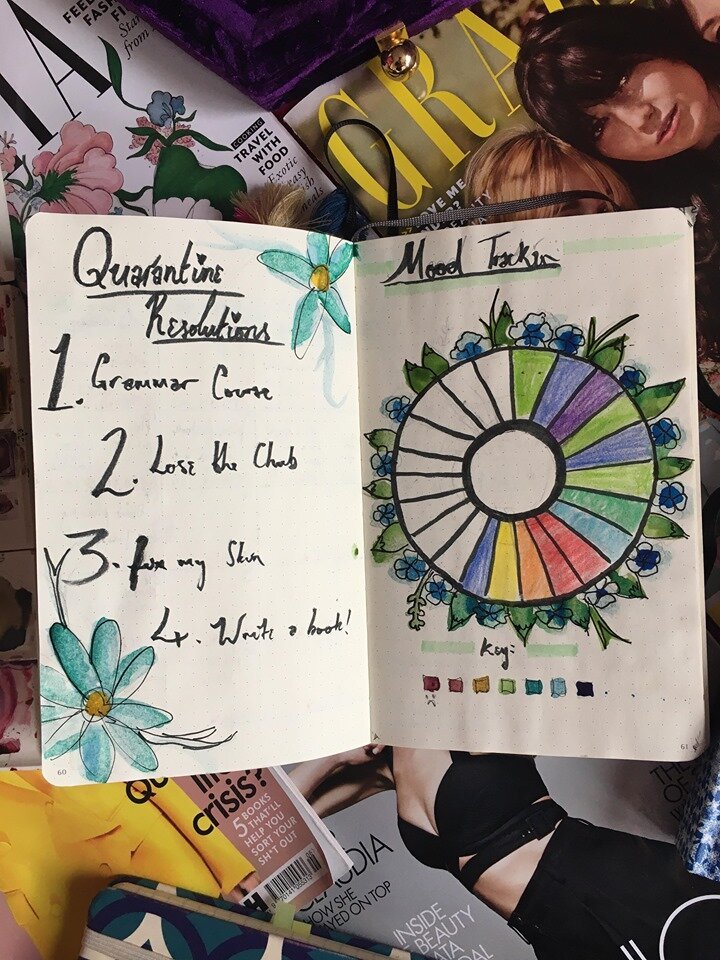 FEEL
FASHION
FI
Star
from
IA
COOKING
TRAVEL
WITH
FOOD
Exotic
easy
GRA
Quarantine
Resolutions
1. Grammar Course
2. Lose the Chub
3. Fix my Skin
4. Write a book!
60
Mood Tracker
Key:
61
crisis?
5 BOOKS
THAT'LL
HELP YOU
SORT YOUR
SH*T OUT
HOW SHE
ON TOP
INSIDE
BEAUTY